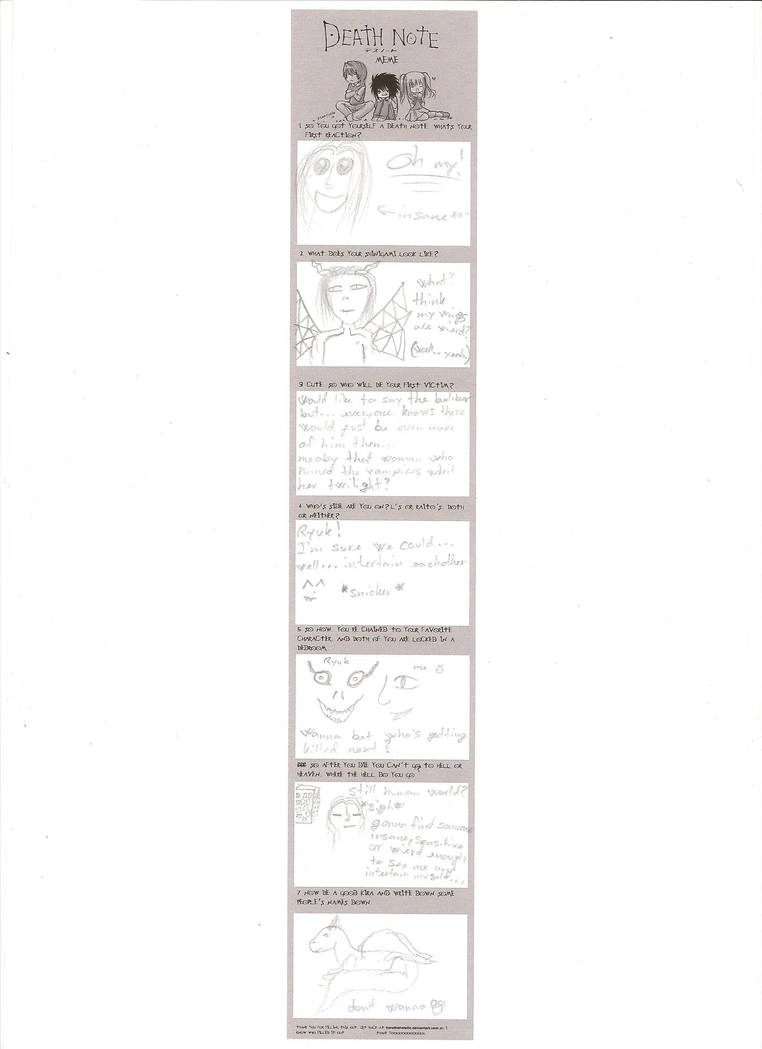 DEATH NOTE
デスノート
MEME
1. SO YOU GOT YOURSELF A DEATH NOTE. WHATS YOUR
FIRST REACTION?
Oh my!
insane
2. WHAT DOES YOUR SHINIGAMI LOOK LIKE?
what?
think
my wings
are wierd?
(well.. yeah)
3 CUTE. SO WHO WILL BE YOUR FIRST VICTIM?
Would like to say the
but... everyone knows there
would just be even more
of him then...
meaby that woman who
ruined the vampires whit
her twilight?
4. WHO'S SIDE ARE YOU ON? L'S OR RAITO'S, BOTH
OR NEITHER?
Ryuk!
I'm sure we could...
well... intertain eachother
^^ *snicker*
5. SO NOW, YOU'RE CHAINED TO YOUR FAVORITE
CHARACTER, AND BOTH OF YOU ARE LOCKED IN A
BEDROOM
Ryuk
me
Wanna bet who's getting
killed next?
666 SO AFTER YOU DIE YOU CAN'T GO TO HELL OR
HEAVEN. WHERE THE HELL DO YOU GO
Still human world?
*sigh*
gonna find someone
insane, sensitive
or wierd enough
to see me and
intertain myself...
7. NOW BE A GOOD KIRA AND WRITE DOWN SOME
PEOPLE'S NAMES DOWN
don't wanna
THANK YOU FOR FILLING THIS OUT
KNOW WHO FILLED IT OUT